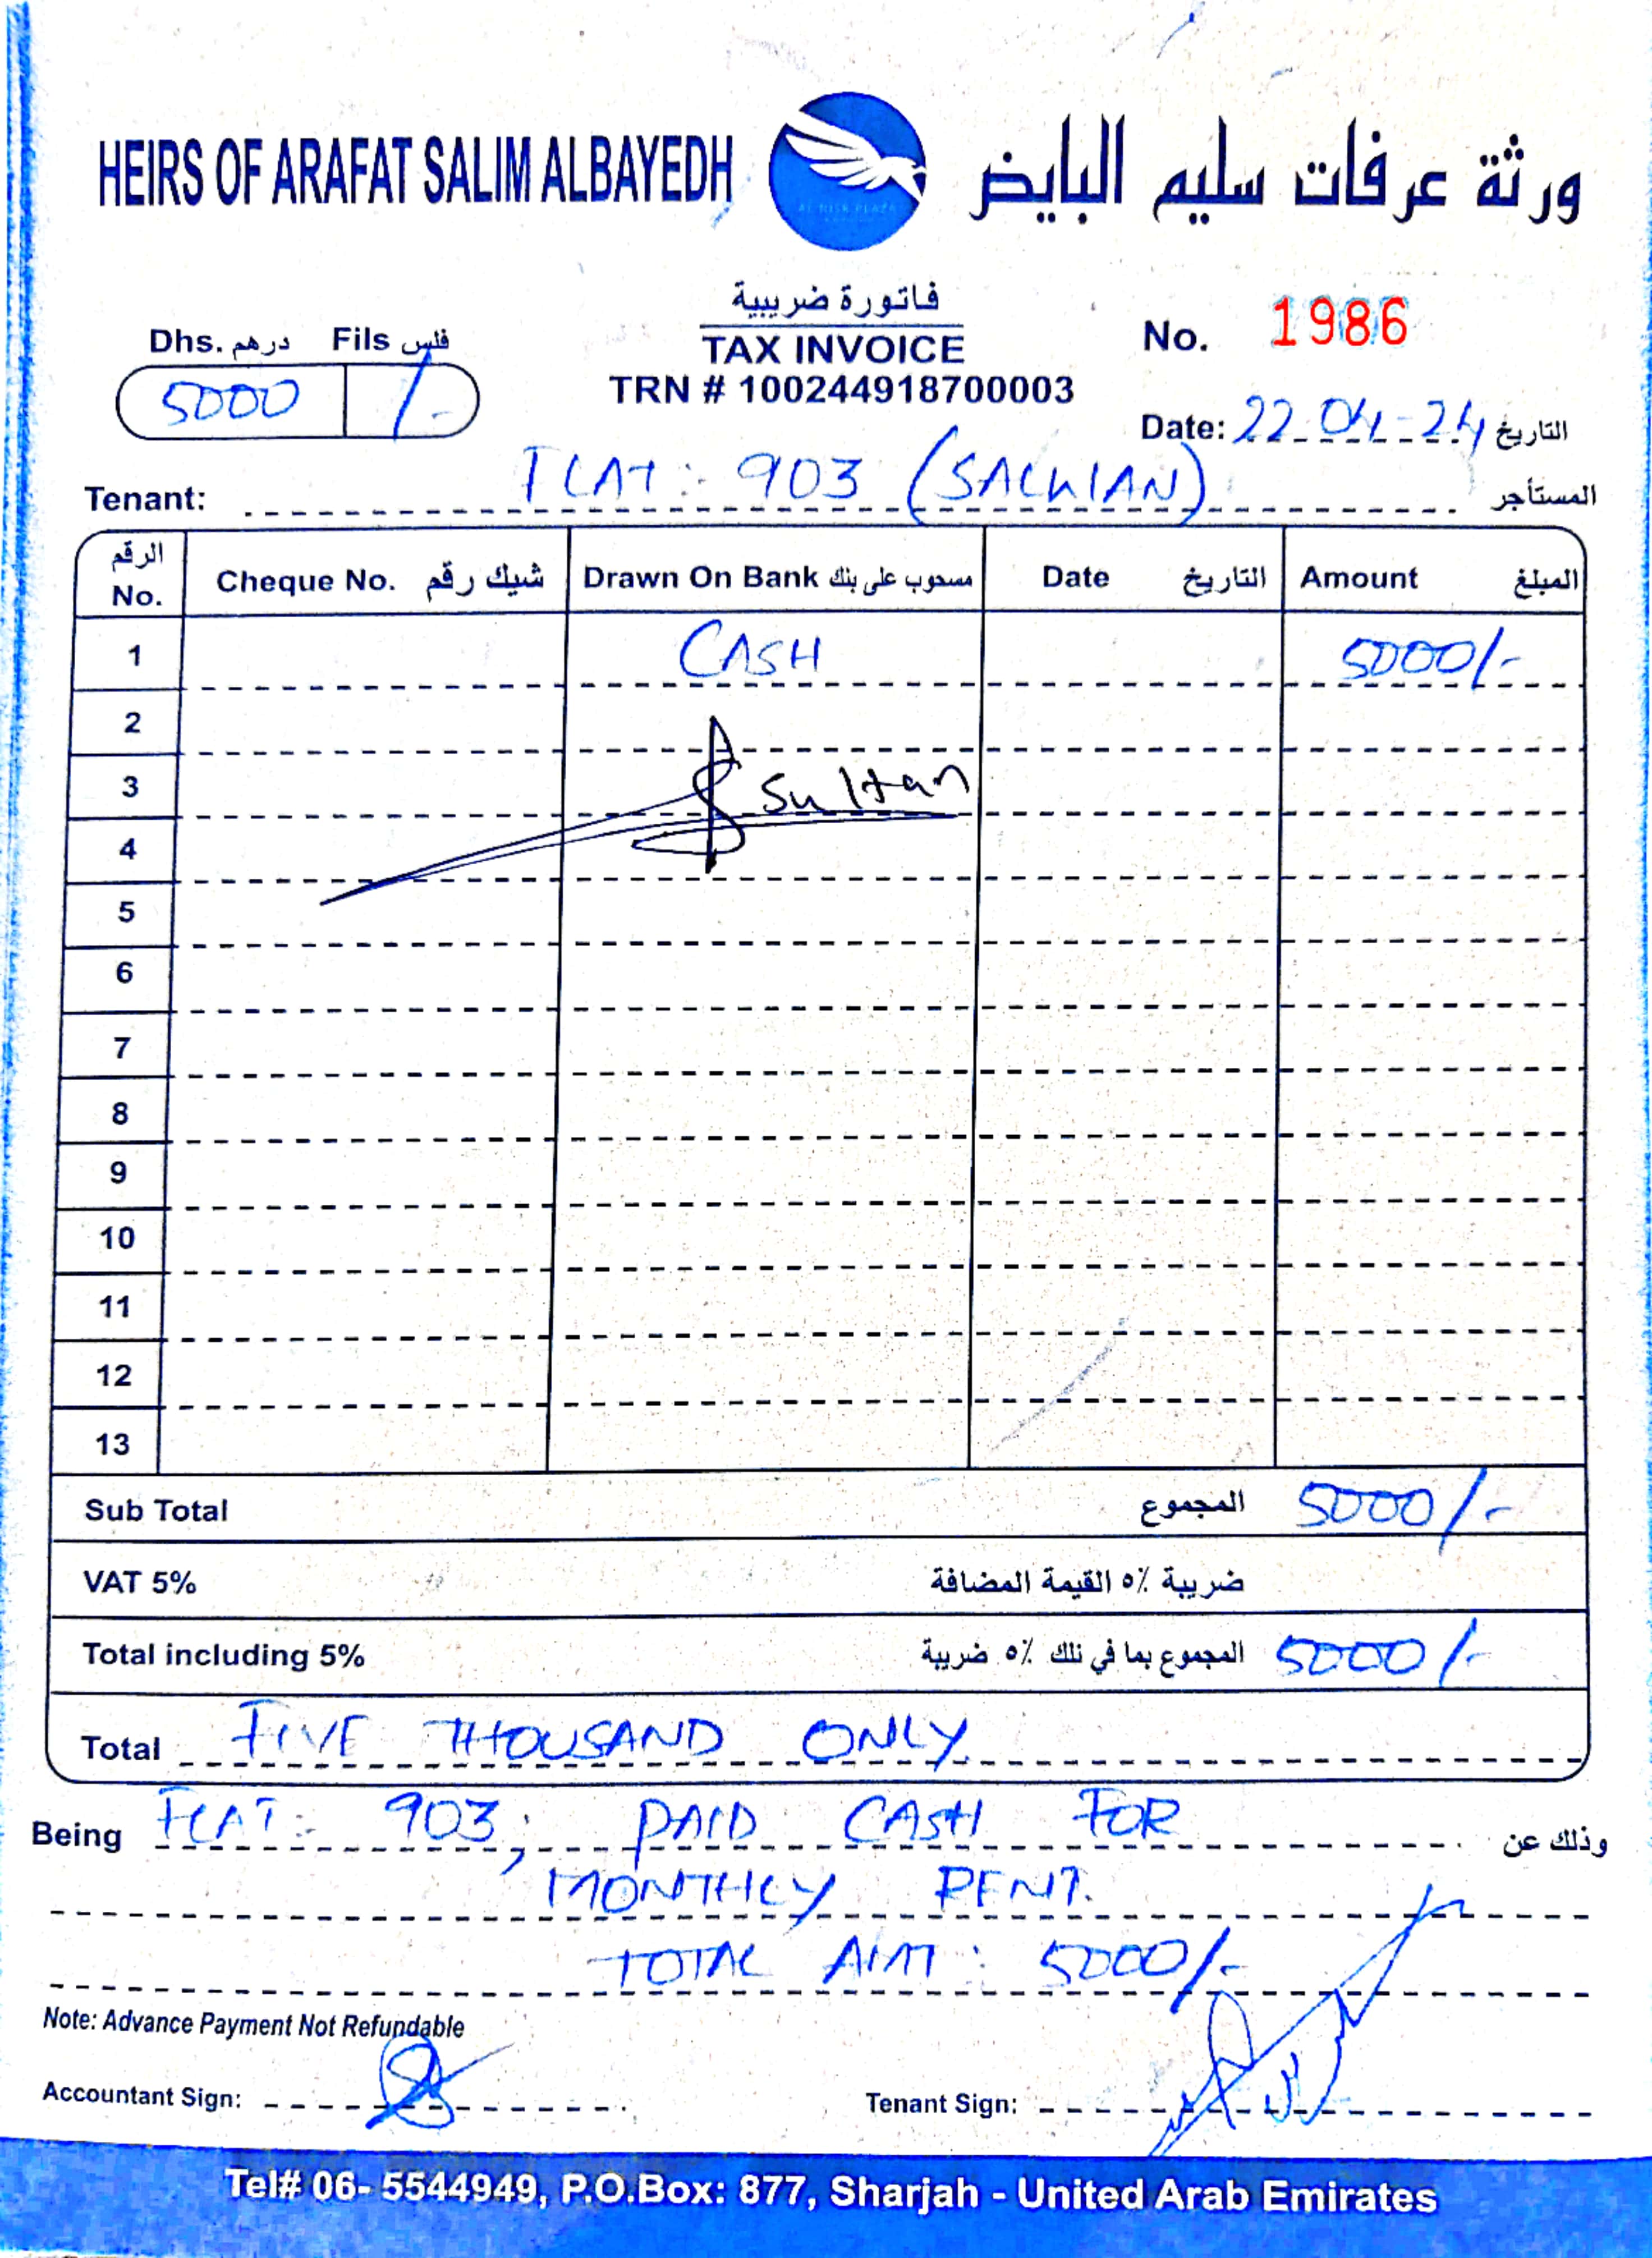 HEIRS OF ARAFAT SALIM ALBAYEDH ورثة عرفات سليم البايض
AL RISK PLAZA
فاتورة ضريبية
TAX INVOICE
TRN # 100244918700003
Dhs. درهم Fils فلس
5000 /-
No. 1986
Date: 22-04-24 التاريخ
Tenant: FLAT: 903 ( المستأجر
الرقم No. Cheque No. شيك رقم Drawn On Bank مسحوب على بنك Date التاريخ Amount المبلغ
1 CASH 5000/-
2
3 Sultan
4
5
6
7
8
9
10
11
12
13
Sub Total المجموع 5000/-
VAT 5% ضريبة ٥٪ القيمة المضافة
Total including 5% المجموع بما في ذلك ٥٪ ضريبة 5000/-
Total FIVE THOUSAND ONLY
Being FLAT: 903; PAID CASH FOR وذلك عن
MONTHLY RENT.
TOTAL AMT: 5000/-
Note: Advance Payment Not Refundable
Accountant Sign: Tenant Sign:
Tel# 06- 5544949, P.O.Box: 877, Sharjah - United Arab Emirates